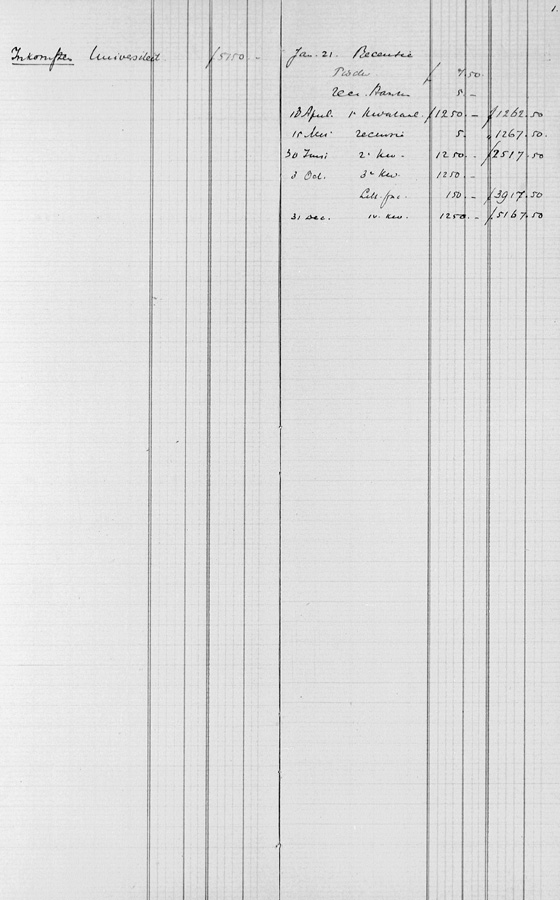 1.
Inkomsten Universiteit f 5150 –
Jan. 21. Recensie
f 7.50
Rec. 5. –
18 April. 1e Kwartaal. f 1250. – f 1262.50
15 Mei recensie 5. „ 1267.50
30 Juni 2e Kw. 1250. – f 2517.50
3 Oct. 3e Kw. 1250. –
150. – f 3917.50
31 Dec. Kw. 1250. – f 5167.50